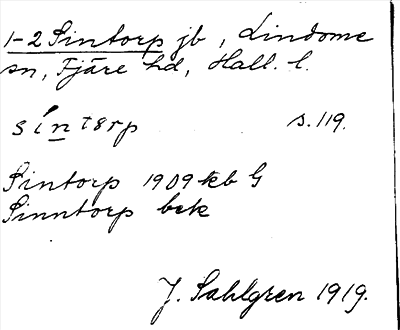 1-2 Sintorp jb, Lindome
sn, Fjäre hd, Hall. l.
síntərp s. 119.
Sintorp 1909 kb G
Sinntorp bek
J. Sahlgren 1919.